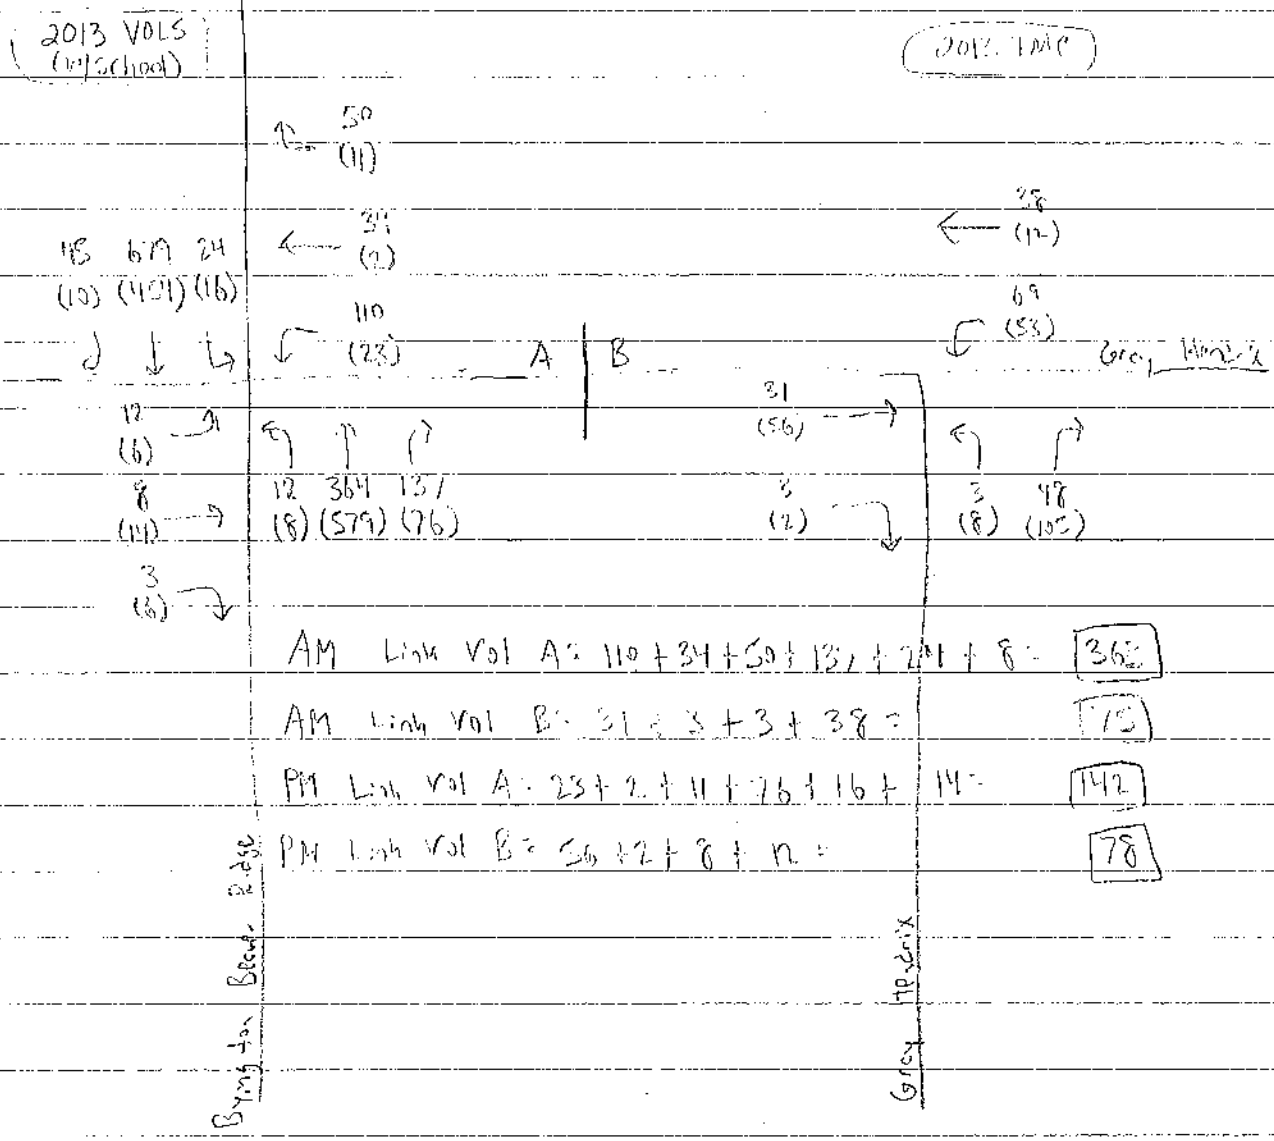 2013 VOLS
(w/school)
2013 TMC
50
(11)
34
(2)
110
(23)
38
(12)
69
(53)
24
(10) (16)
A | B
Grey Hendrix
12
(6)
8
(14)
3
12 364 137
(8) (579) (76)
31
(56)
3
(2)
3 48
(8) (105)
AM Link Vol A = 110 + 34 + 50 + 137 + 24 + 8 = 363
AM Link Vol B = 31 + 3 + 3 + 38 = 75
PM Link Vol A = 23 + 2 + 11 + 76 + 16 + 14 = 142
PM Link Vol B = 56 + 2 + 8 + 12 = 78
Byington Beaver Ridge
Gray Hendrix